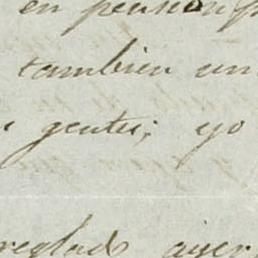 en pension
tambien un
gentes; yo
reglado ayer